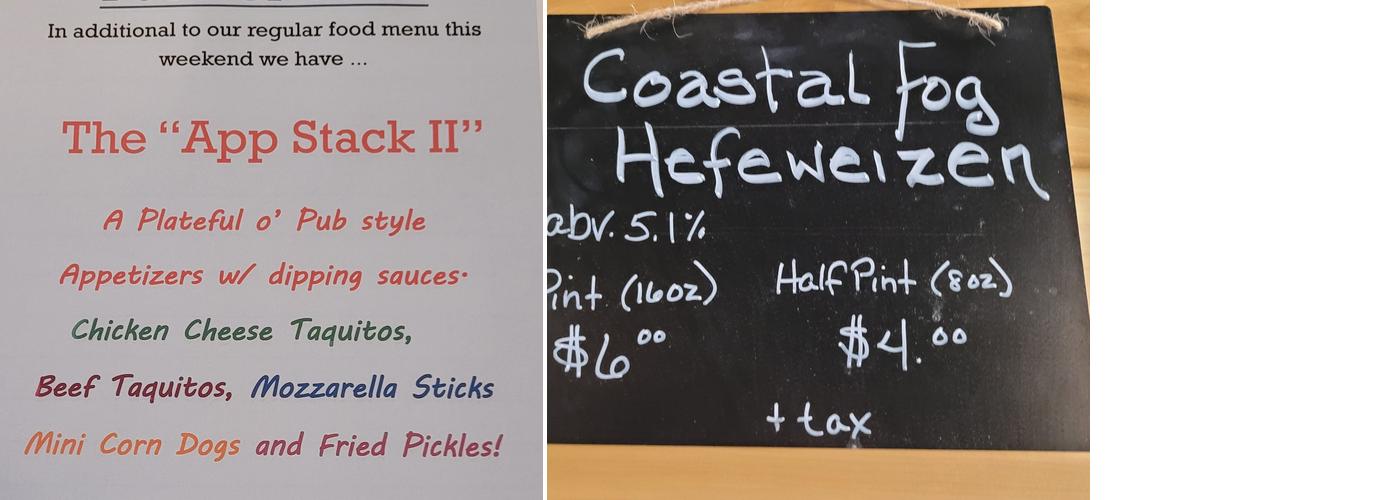 In additional to our regular food menu this
weekend we have ...
The “App Stack II”
A Plateful o’ Pub style
Appetizers w/ dipping sauces·
Chicken Cheese Taquitos,
Beef Taquitos, Mozzarella Sticks
Mini Corn Dogs and Fried Pickles!
Coastal Fog
Hefeweizen
abv. 5.1%
Pint (16oz) Half Pint (8oz)
$6.00 $4.00
+ tax